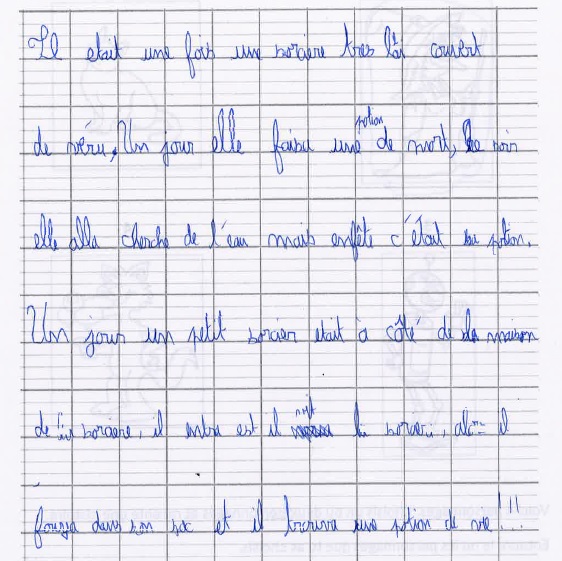 Il etait une fois une sorciere tres couvert
de véru, Un jour elle faisai une potion de mort, le soir
elle alla cherche de l'eau mais enfête c'était sa potion.
Un jour un petit sorcier etait à côté de la maison
de la sorciere, il entra est il vit la sorcier, alors il
fouya dans son sac et il trouva une potion de vie!!!